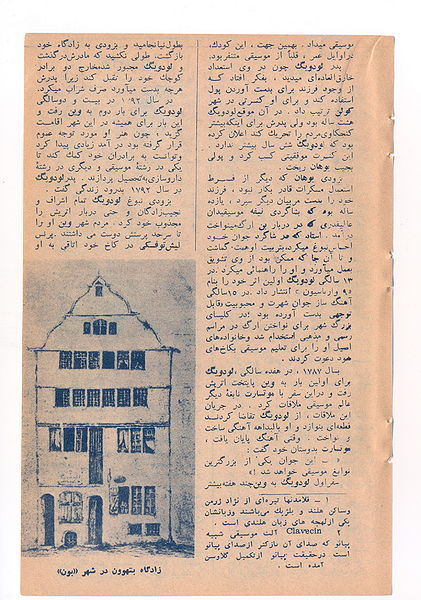 موسیقی میداد. بهمین جهت، این کودک،
در اوایل عمر، قلباً از موسیقی متنفر بود.
پدر لودویگ چون در وی استعداد
خارق‌العاده‌ای میدید، بفکر افتاد که
از وجود فرزند برای بدست آوردن پول
استفاده کند و برای او کنسرتی در شهر
کولن ترتیب داد. در آن موقع لودویگ
هشت ساله بود ولی پدرش برای اینکه بیشتر
کنجکاوی مردم را تحریک کند اعلان کرده
بود که لودویگ شش سال بیشتر ندارد.
این کنسرت موفقیتی کسب کرد و پولی
بجیب یوهان ریخت.
بزودی یوهان که دیگر از فرط
استعمال مسکرات قادر بکار نبود، فرزند
خود را بدست مربیان دیگر سپرد، یازده
ساله بود که بشاگردی نیفه موسیقیدان
عالیقدری که در دربار بن ارگ مینواخت
در آمد. استاد که در شاگرد جوان خود
احساس نبوغ میکرد، بتربیت او همت گماشت
و تا آن جا که ممکن بود از وی تشویق
بعمل میآورد و او را راهنمائی میکرد. در
۱۳ سالگی لودویگ اولین اثر خود را بنام
«۹ واریاسیون» انتشار داد. در ۱۵ سالگی
آهنگ ساز جوان شهرت و محبوبیت قابل
توجهی بدست آورده بود؛ در کلیسای
بزرگ شهر برای نواختن ارگ در مراسم
رسمی و مذهبی استخدام شد و خانواده‌های
اصیل او را برای تعلیم موسیقی بکاخ‌های
خود دعوت کردند.
بسال ۱۷۸۷، در هفده سالگی، لودویگ
برای اولین بار به وین پایتخت اتریش
رفت و در این سفر با موتسارت نابغهٔ دیگر
عالم موسیقی ملاقات کرد. در جریان
این ملاقات، از لودویگ تقاضا کردند
قطعه‌ای بنوازد و او بالبداهه آهنگی ساخت
و نواخت. وقتی آهنگ پایان یافت،
موتسارت بدوستان خود گفت:
«ـ این جوان یکی از بزرگترین
نوابغ موسیقی خواهد شد!»
سفر اول لودویگ به وین چند هفته بیشتر
۱ ـ فلاماندها تیره‌ای از نژاد ژرمن
و ساکن هلند و بلژیک می‌باشند و زبانشان
یکی از لهجه های زبان هلندی است.
۲ Clavecin آلت موسیقی شبیه
پیانو که صدای آن نازکتر از صدای پیانو
است در حقیقت پیانو از تکمیل کلاوسن
آمده است.
بطول نیانجامید و بزودی به زادگاه خود
بازگشت. طولی نکشید که مادرش درگذشت
و لودویگ مجبور شد مخارج دو برادر
کوچک خود را تقبل کند، زیرا پدرش
هرچه بدست میآورد صرف شراب میکرد.
در سال ۱۷۹۲ در بیست و دو سالگی
لودویگ برای بار دوم به وین رفت و
این بار برای همیشه در این شهر اقامت
گزید؛ چون هنر او مورد توجه عموم
قرار گرفته بود در آمد زیادی پیدا کرد
و توانست به برادران خود کمک کند تا
یکی در رشتهٔ موسیقی و دیگری در رشتهٔ
داروسازی به تحصیل پردازند. پدر لودویگ
در سال ۱۷۹۲ بدرود زندگی گفت.
بزودی نبوغ لودویگ تمام اشراف و
نجیب‌زادگان و حتی دربار اتریش را
مجذوب خود کرد. مردم شهر وین او را
تا سرحد پرستش دوست می داشتند. پرنس
لیش‌نوفسکی در کاخ خود اتاقی به او
زادگاه بتهوون در شهر «بون»